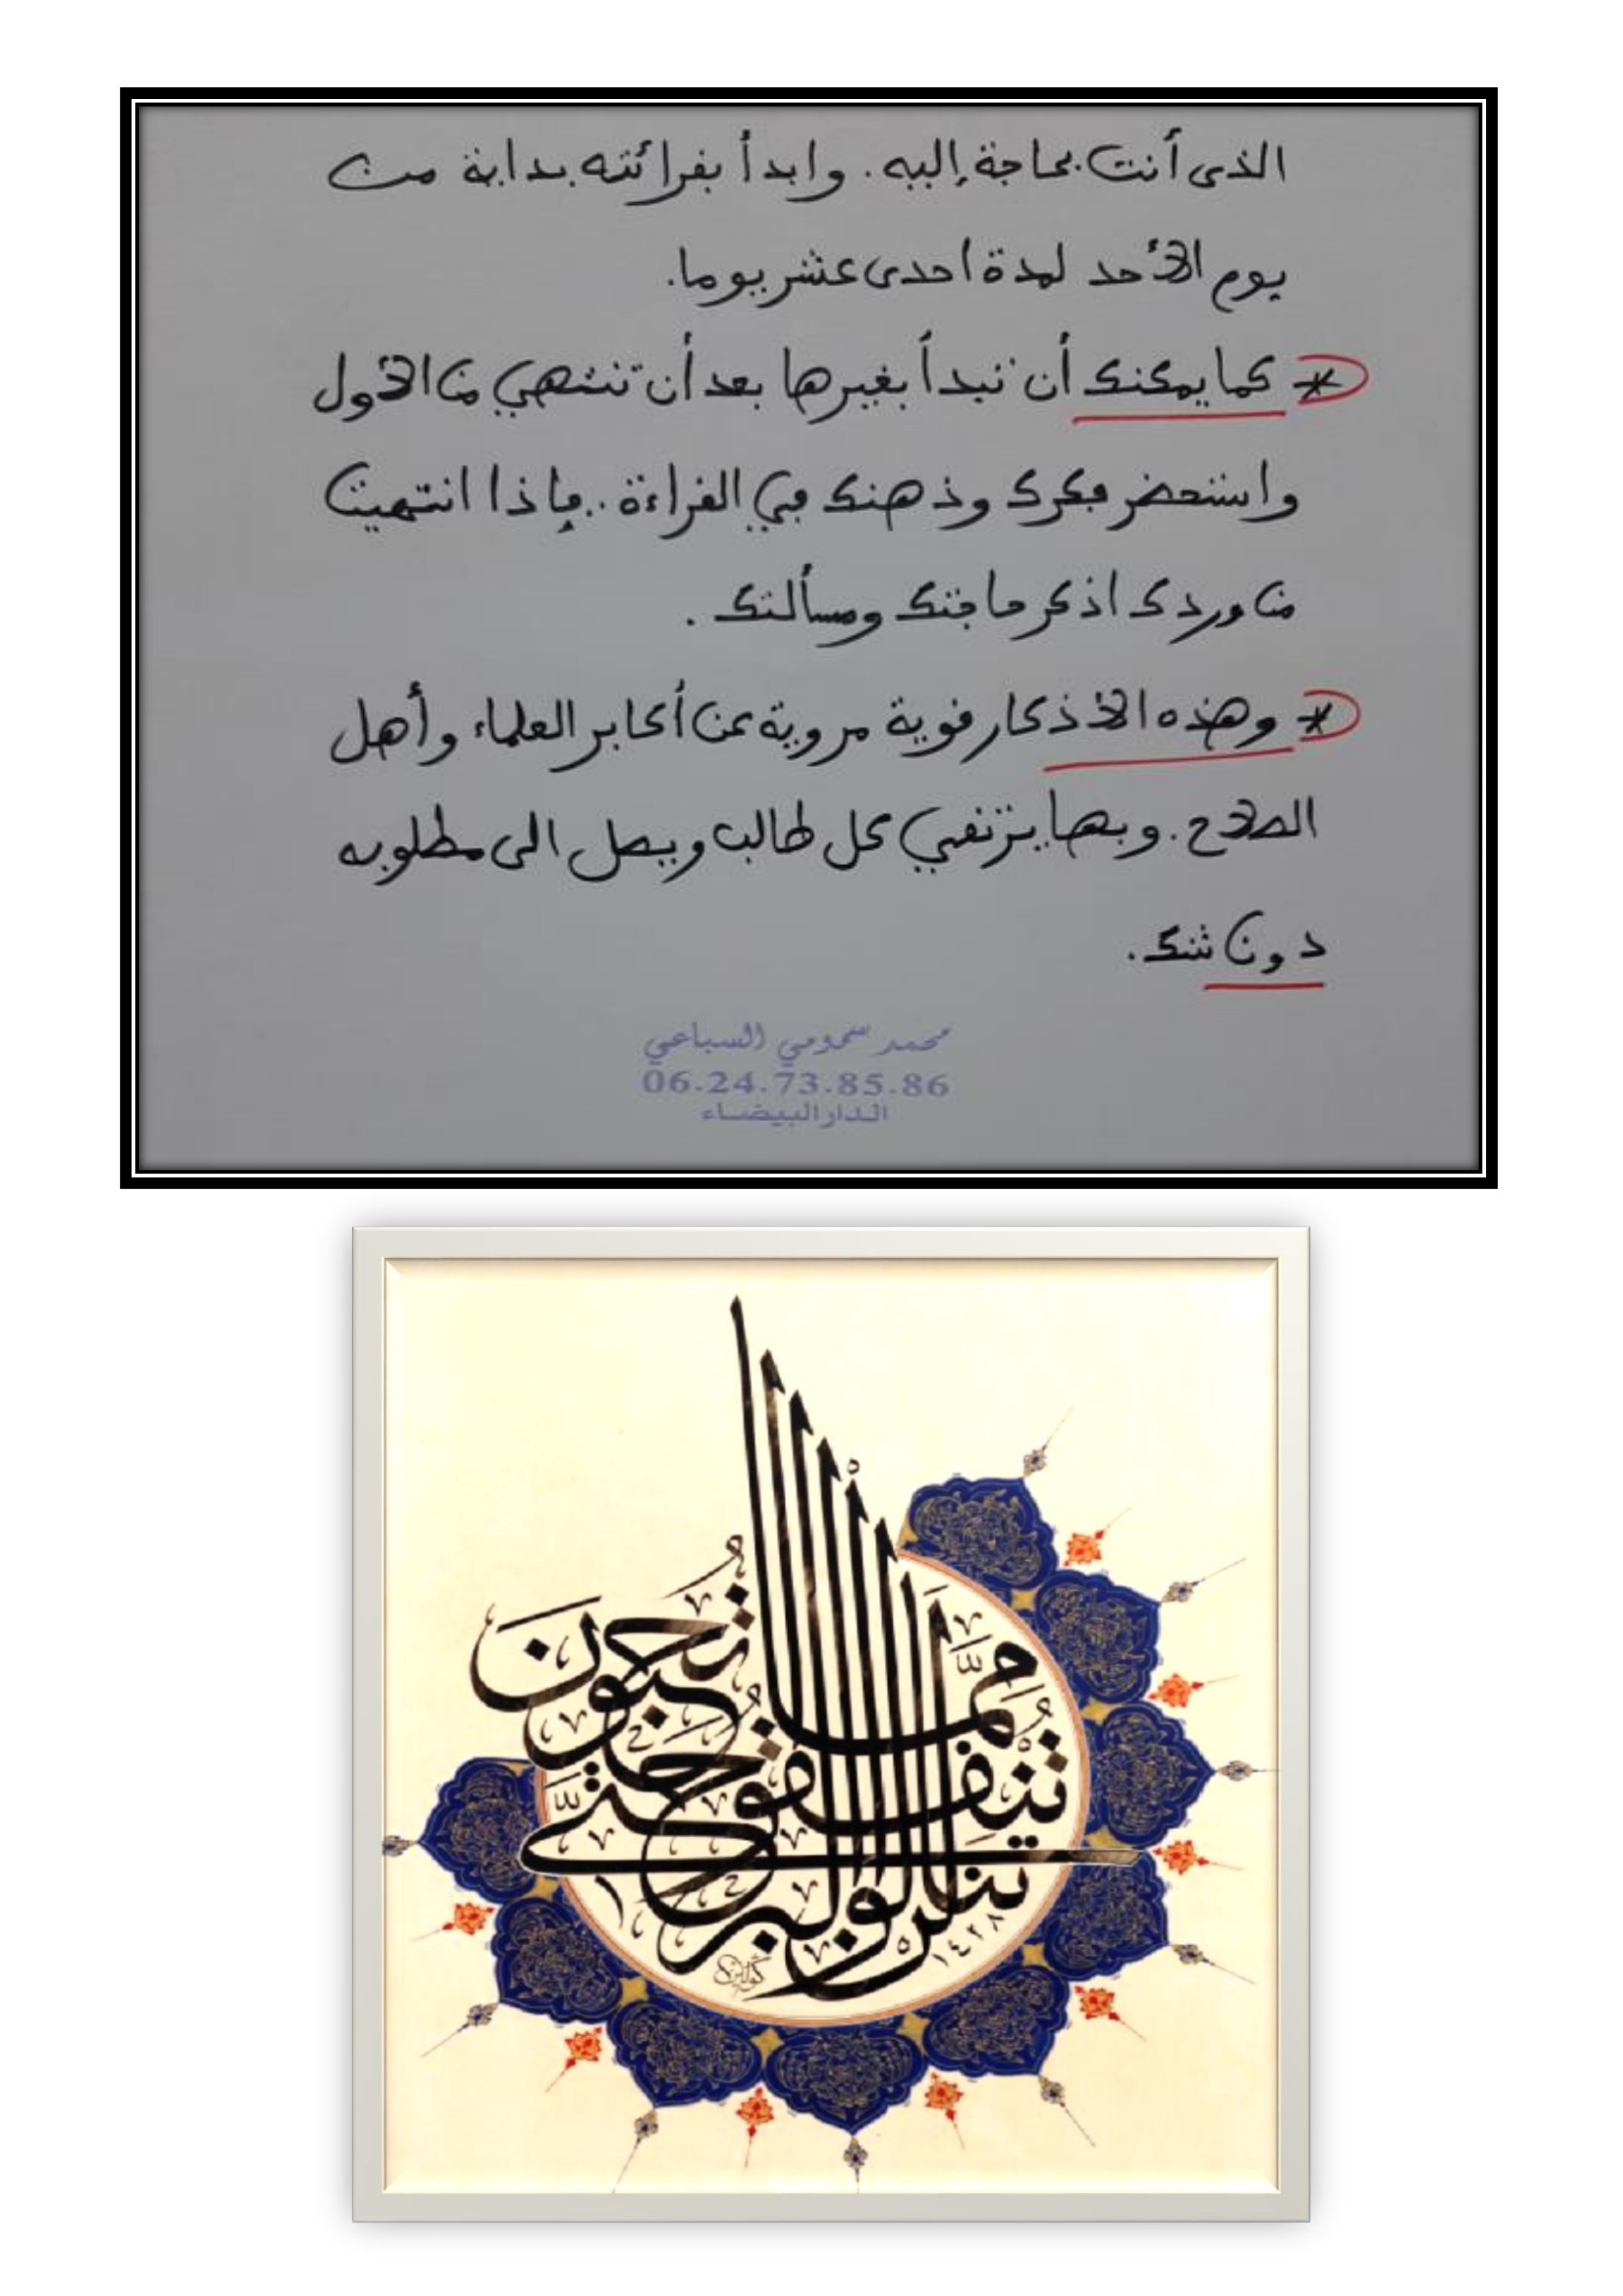 الذى أنت بحاجة إليه. وابدأ بقرائته بداية من
يوم الأحد لمدة احدى عشر يوما.
* كما يمكنك أن تبدأ بغيرها بعد أن تنتهي من الأول
واستحضر فكرك وذهنك في القراءة.. فإذا انتهيت
من وردك اذكر حاجتك ومسألتك.
* وهذه الأذكار قوية مروية عن أكابر العلماء وأهل
الصلاح. وبها يرتقي كل طالب ويصل الى مطلوبه
دون شك.
محمد سمومي السباعي
06.24.73.85.86
الدار البيضاء
لَنْ تَنَالُوا الْبِرَّ حَتَّى تُنْفِقُوا مِمَّا تُحِبُّونَ
١٤٢٨